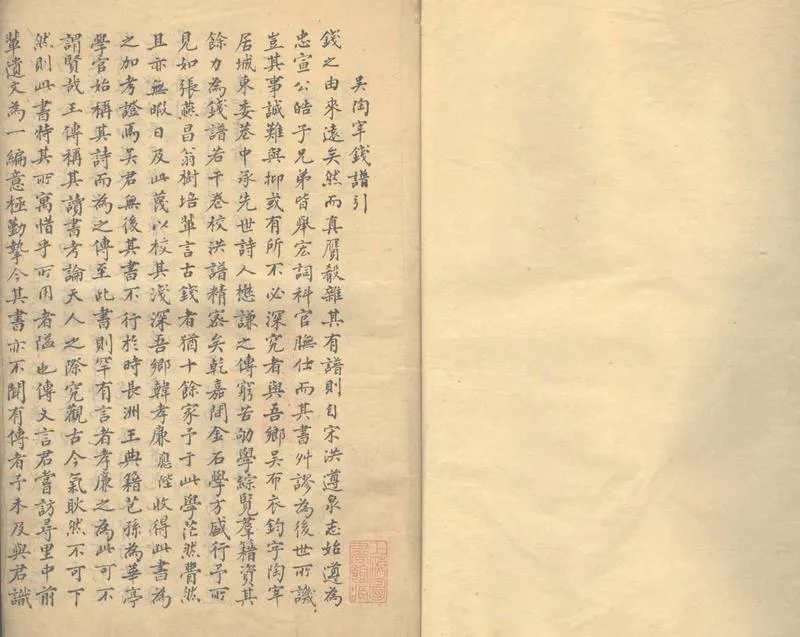 吴陶宰錢譜引
錢之由來遠矣然而真贋殽雜其有譜則自宋洪遵泉志始遵為
忠宣公皓子兄弟皆舉宏詞科官膴仕而其書舛謬為後世所譏
豈其事誠難與抑或有所不必深究者與吾鄉吴布衣鈞字陶宰
居城東委巷中承先世詩人懋謙之傳窮苦劬學綜覽羣籍資其
餘力為錢譜若干卷校洪譜精密矣乾嘉間金石學方盛行予所
見如張燕昌翁樹培輩言古錢者猶十餘家予于此學茫然費然
且亦無暇日及此蔑以校其淺深吾鄉韓孝廉應陛收得此書為
之加考證焉吴君無後其書不行於時長洲王典籍芑孫為華亭
學官始稱其詩而為之傳至此書則罕有言者孝廉之為此可不
謂賢哉王傳稱其讀書考論天人之際究觀古今氣耿然不可下
然則此書特其所寓惜乎所用者隘也傳又言君嘗訪尋里中前
輩遺文為一編意極勤摯今其書亦不聞有傳者予未及與君識